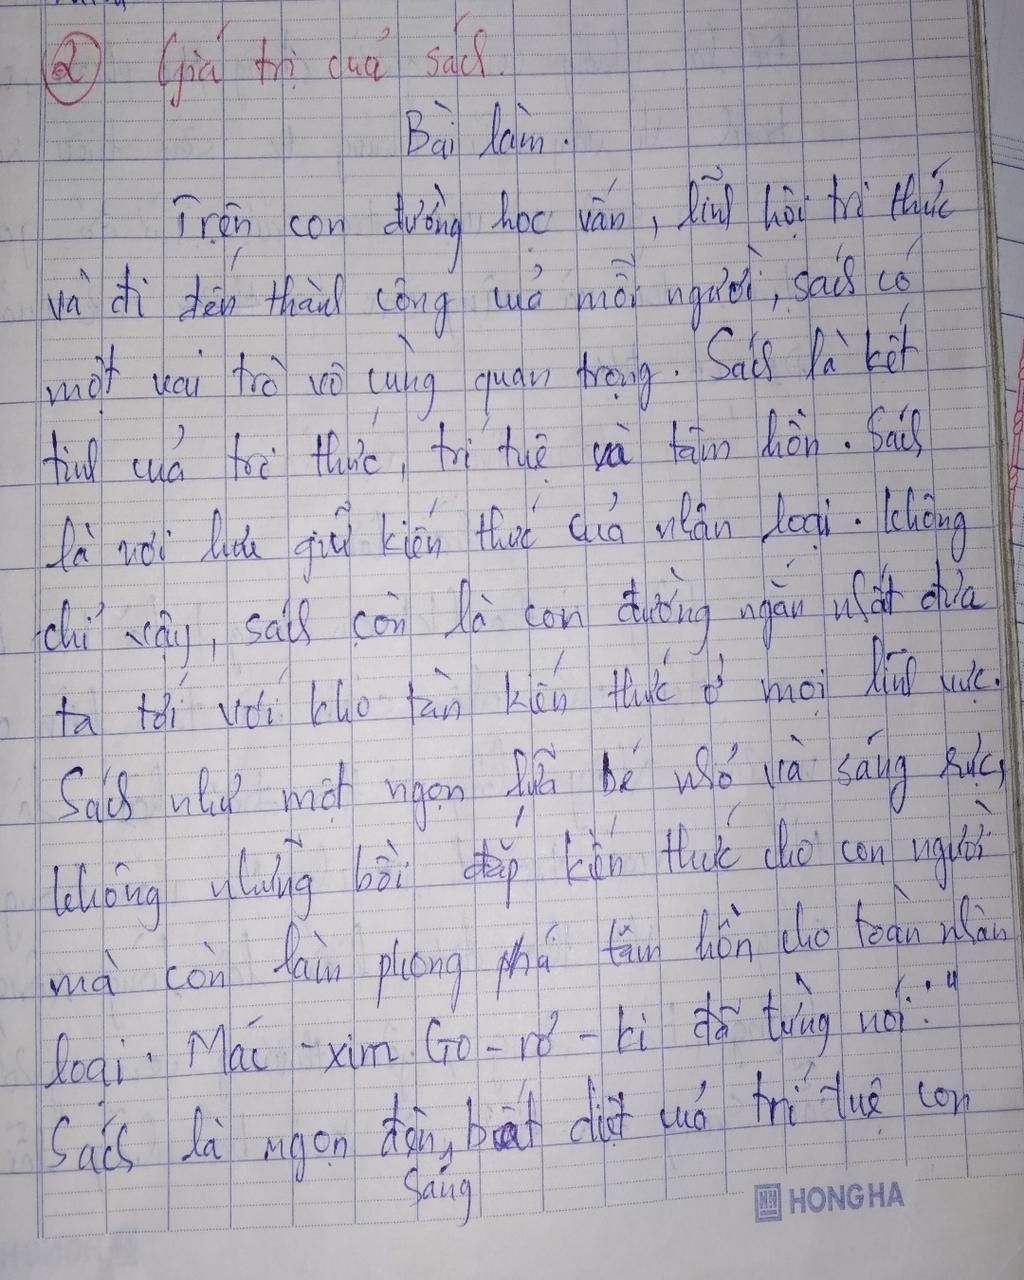 ② Giá trị của sách.
Bài làm.
Trên con đường học vấn, lĩnh hội tri thức
và đi đến thành công của mỗi người, sách có
một vai trò vô cùng quan trọng. Sách là kết
tinh của tri thức, trí tuệ và tâm hồn. Sách
là nơi lưu giữ kiến thức của nhân loại. Không
chỉ vậy, sách còn là con đường ngắn nhất đưa
ta tới với kho tàn kiến thức ở mọi lĩnh vực.
Sách như một ngọn lửa bé nhỏ và sáng rực,
không những bồi đắp kiến thức cho con người
mà còn làm phong phú tâm hồn cho toàn nhân
loại. Mác-xim Go-rơ-ki đã từng nói: "
Sách là ngọn đèn, bất diệt của trí tuệ con
sáng
HONG HA